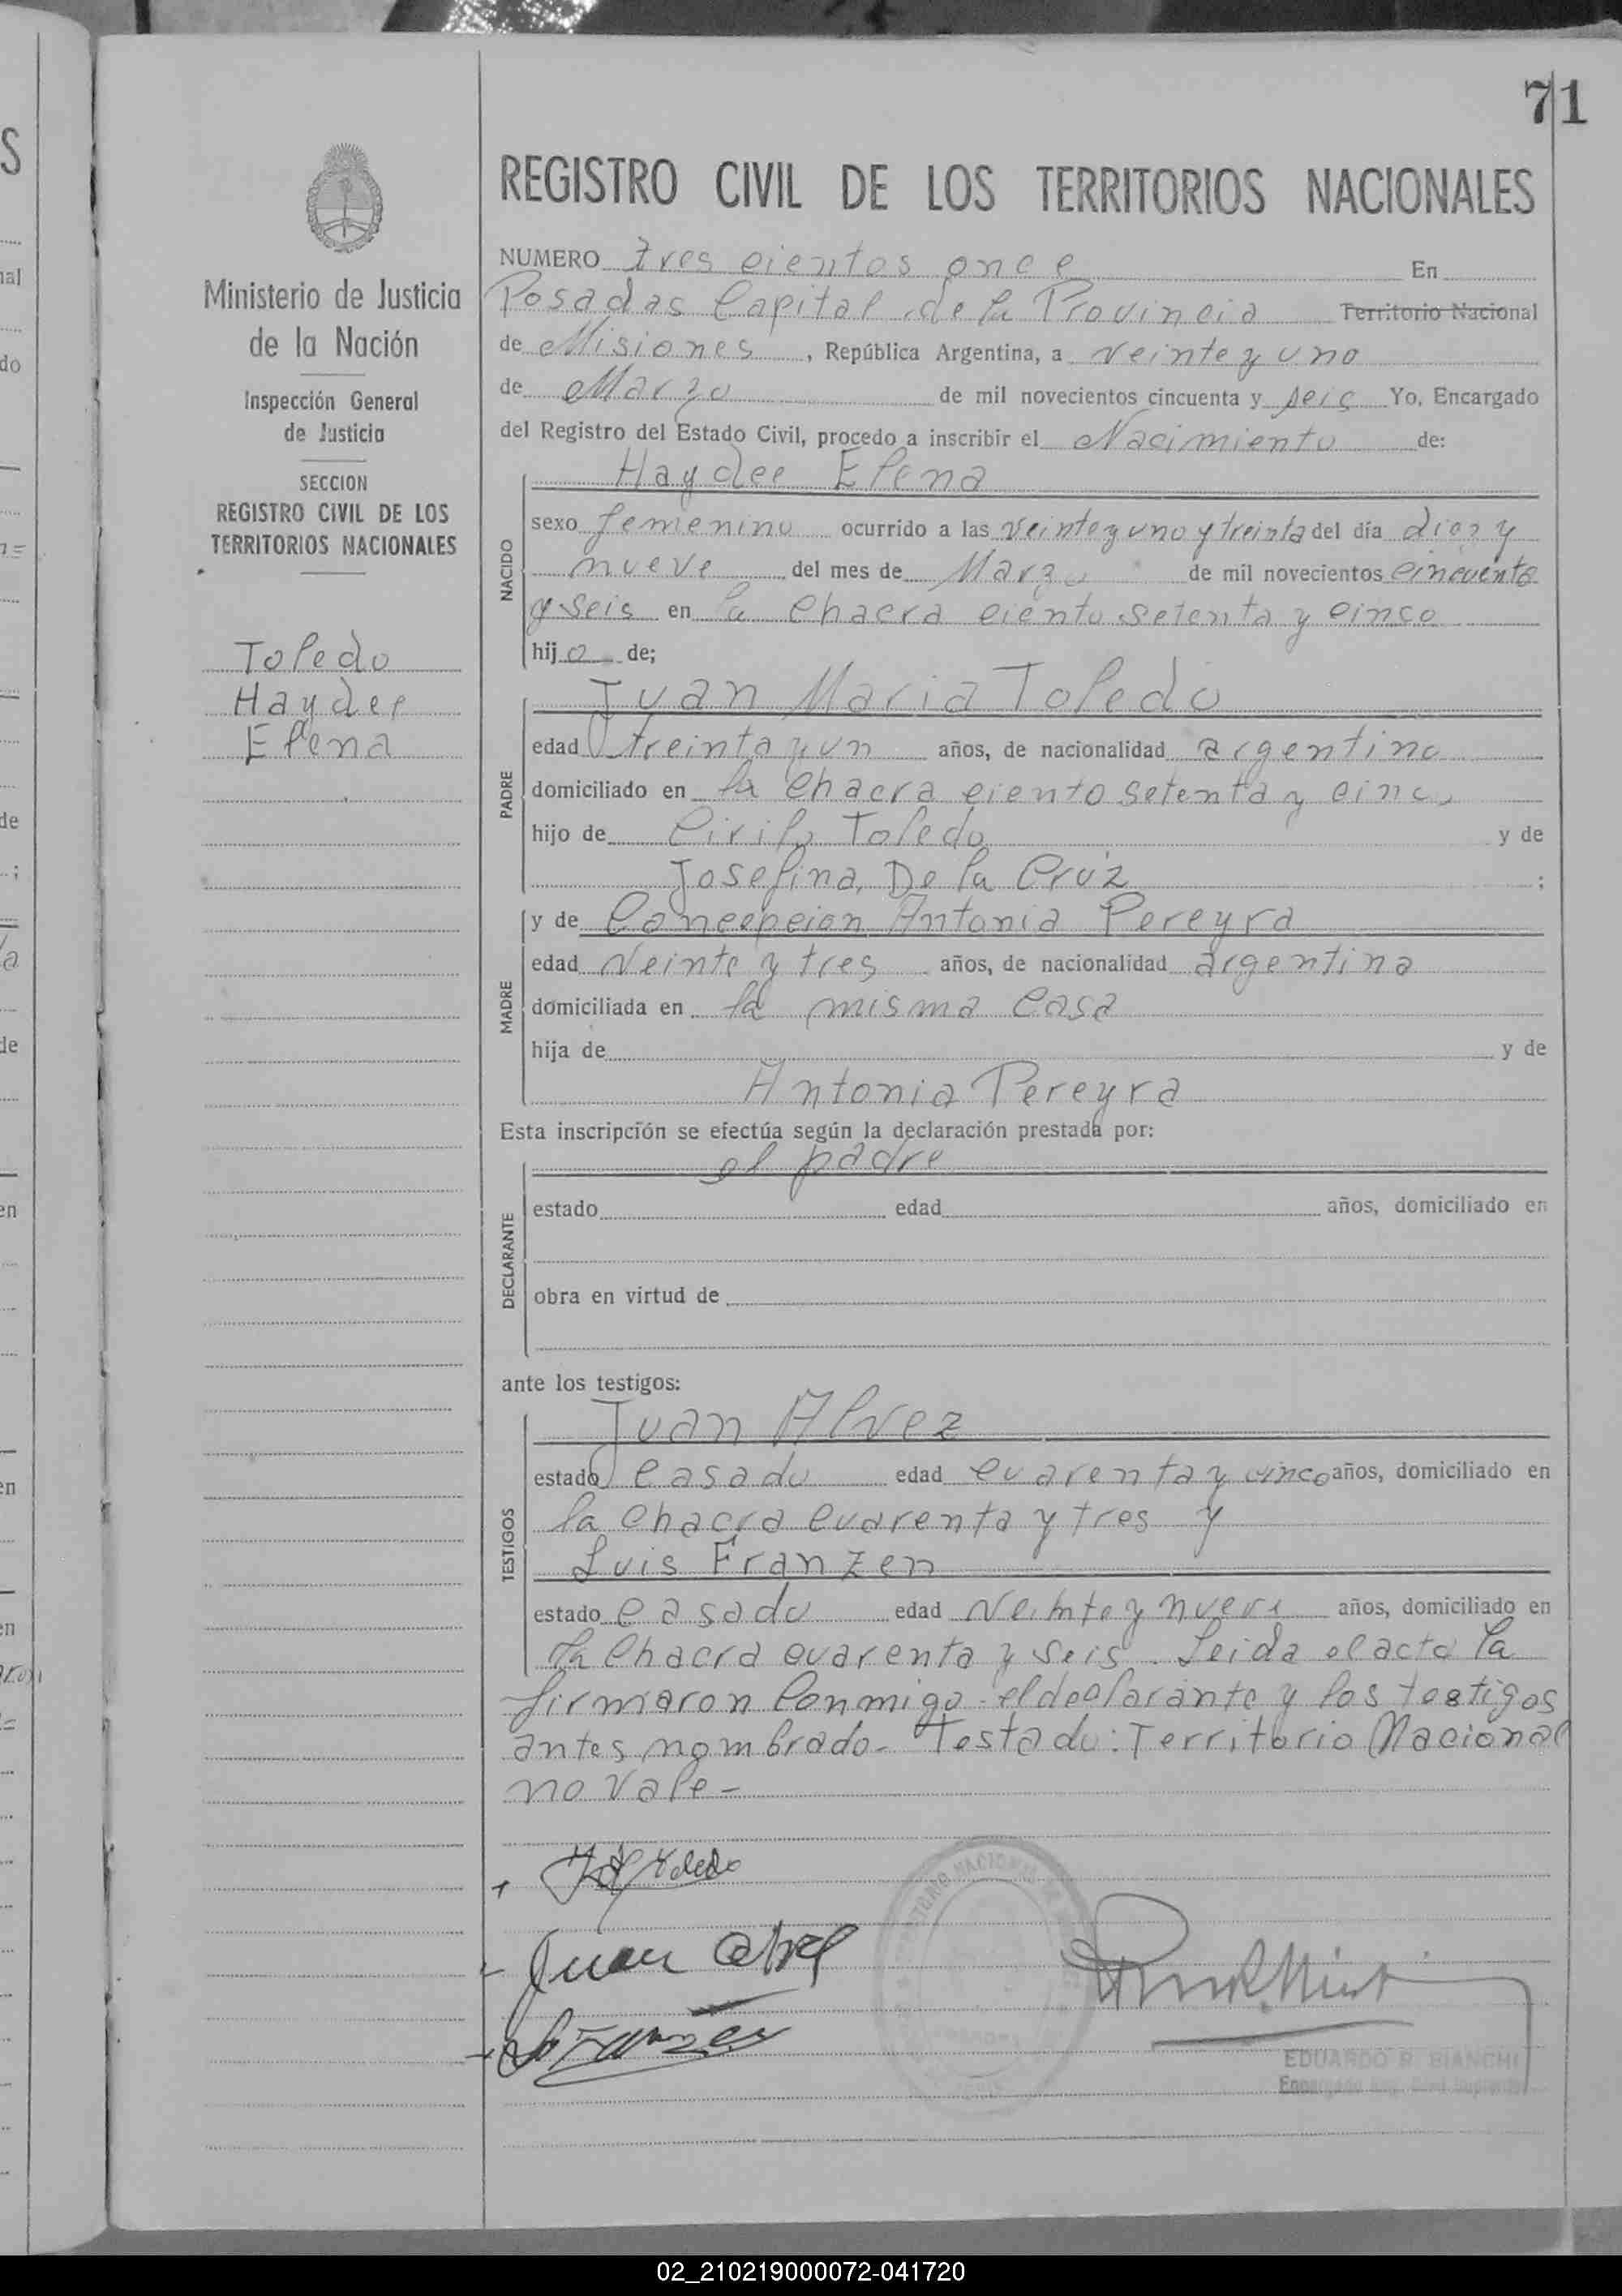 71
REGISTRO CIVIL DE LOS TERRITORIOS NACIONALES
Ministerio de Justicia
de la Nación
Inspección General
de Justicia
SECCION
REGISTRO CIVIL DE LOS
TERRITORIOS NACIONALES
Toledo
Haydee
Elena
NUMERO tres cientos once En
Posadas Capital de la Provincia Territorio Nacional
de Misiones, República Argentina, a veinte y uno
de Marzo de mil novecientos cincuenta y seis Yo, Encargado
del Registro del Estado Civil, procedo a inscribir el Nacimiento de:
NACIDO
Haydee Elena
sexo femenino ocurrido a las veinte y uno y treinta del día diez y
nueve del mes de Marzo de mil novecientos cincuenta
y seis en la chacra ciento setenta y cinco
hija de;
PADRE
Juan Maria Toledo
edad treinta y un años, de nacionalidad argentino
domiciliado en la chacra ciento setenta y cinco
hijo de Cirilo Toledo y de
Josefina De la Cruz ;
MADRE
y de Concepcion Antonia Pereyra
edad veinte y tres años, de nacionalidad argentina
domiciliada en la misma casa
hija de y de
Antonia Pereyra
Esta inscripción se efectúa según la declaración prestada por:
DECLARANTE
el padre
estado edad años, domiciliado en
obra en virtud de
ante los testigos:
TESTIGOS
Juan Alvez
estado casado edad cuarenta y cinco años, domiciliado en
la chacra cuarenta y tres y
Luis Franzen
estado casado edad veinte y nueve años, domiciliado en
la chacra cuarenta y seis. Leida el acta la
firmaron conmigo el declarante y los testigos
antes nombrado- Testado: Territorio Nacional
no vale-
Toledo
Juan
Franzen
EDUARDO R. BIANCHI
02_210219000072-041720